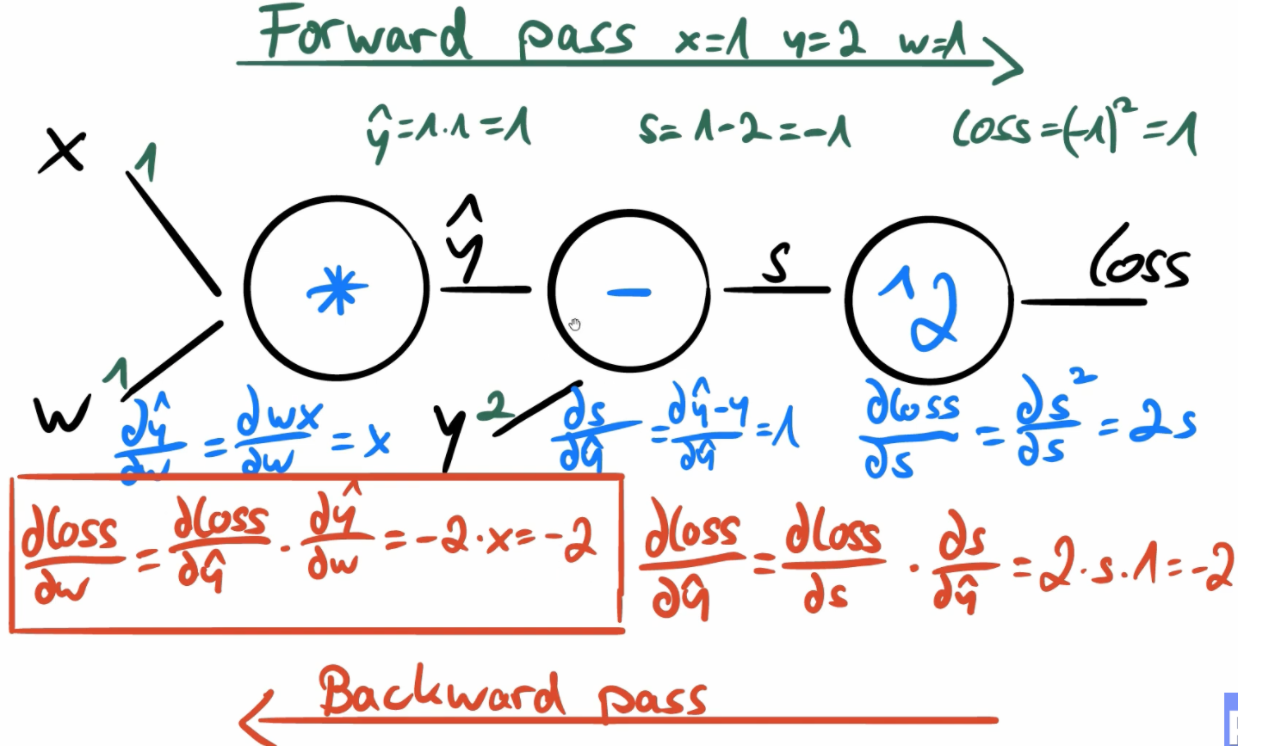 Forward pass x=1 y=2 w=1
ŷ=1·1=1 s=1-2=-1 loss=(-1)²=1
x 1
* ŷ - s ^2 loss
w 1
y 2
∂ŷ/∂w = ∂wx/∂w = x ∂s/∂ŷ = ∂ŷ-y/∂ŷ = 1 ∂loss/∂s = ∂s²/∂s = 2s
∂loss/∂w = ∂loss/∂ŷ · ∂ŷ/∂w = -2·x = -2 ∂loss/∂ŷ = ∂loss/∂s · ∂s/∂ŷ = 2·s·1 = -2
Backward pass